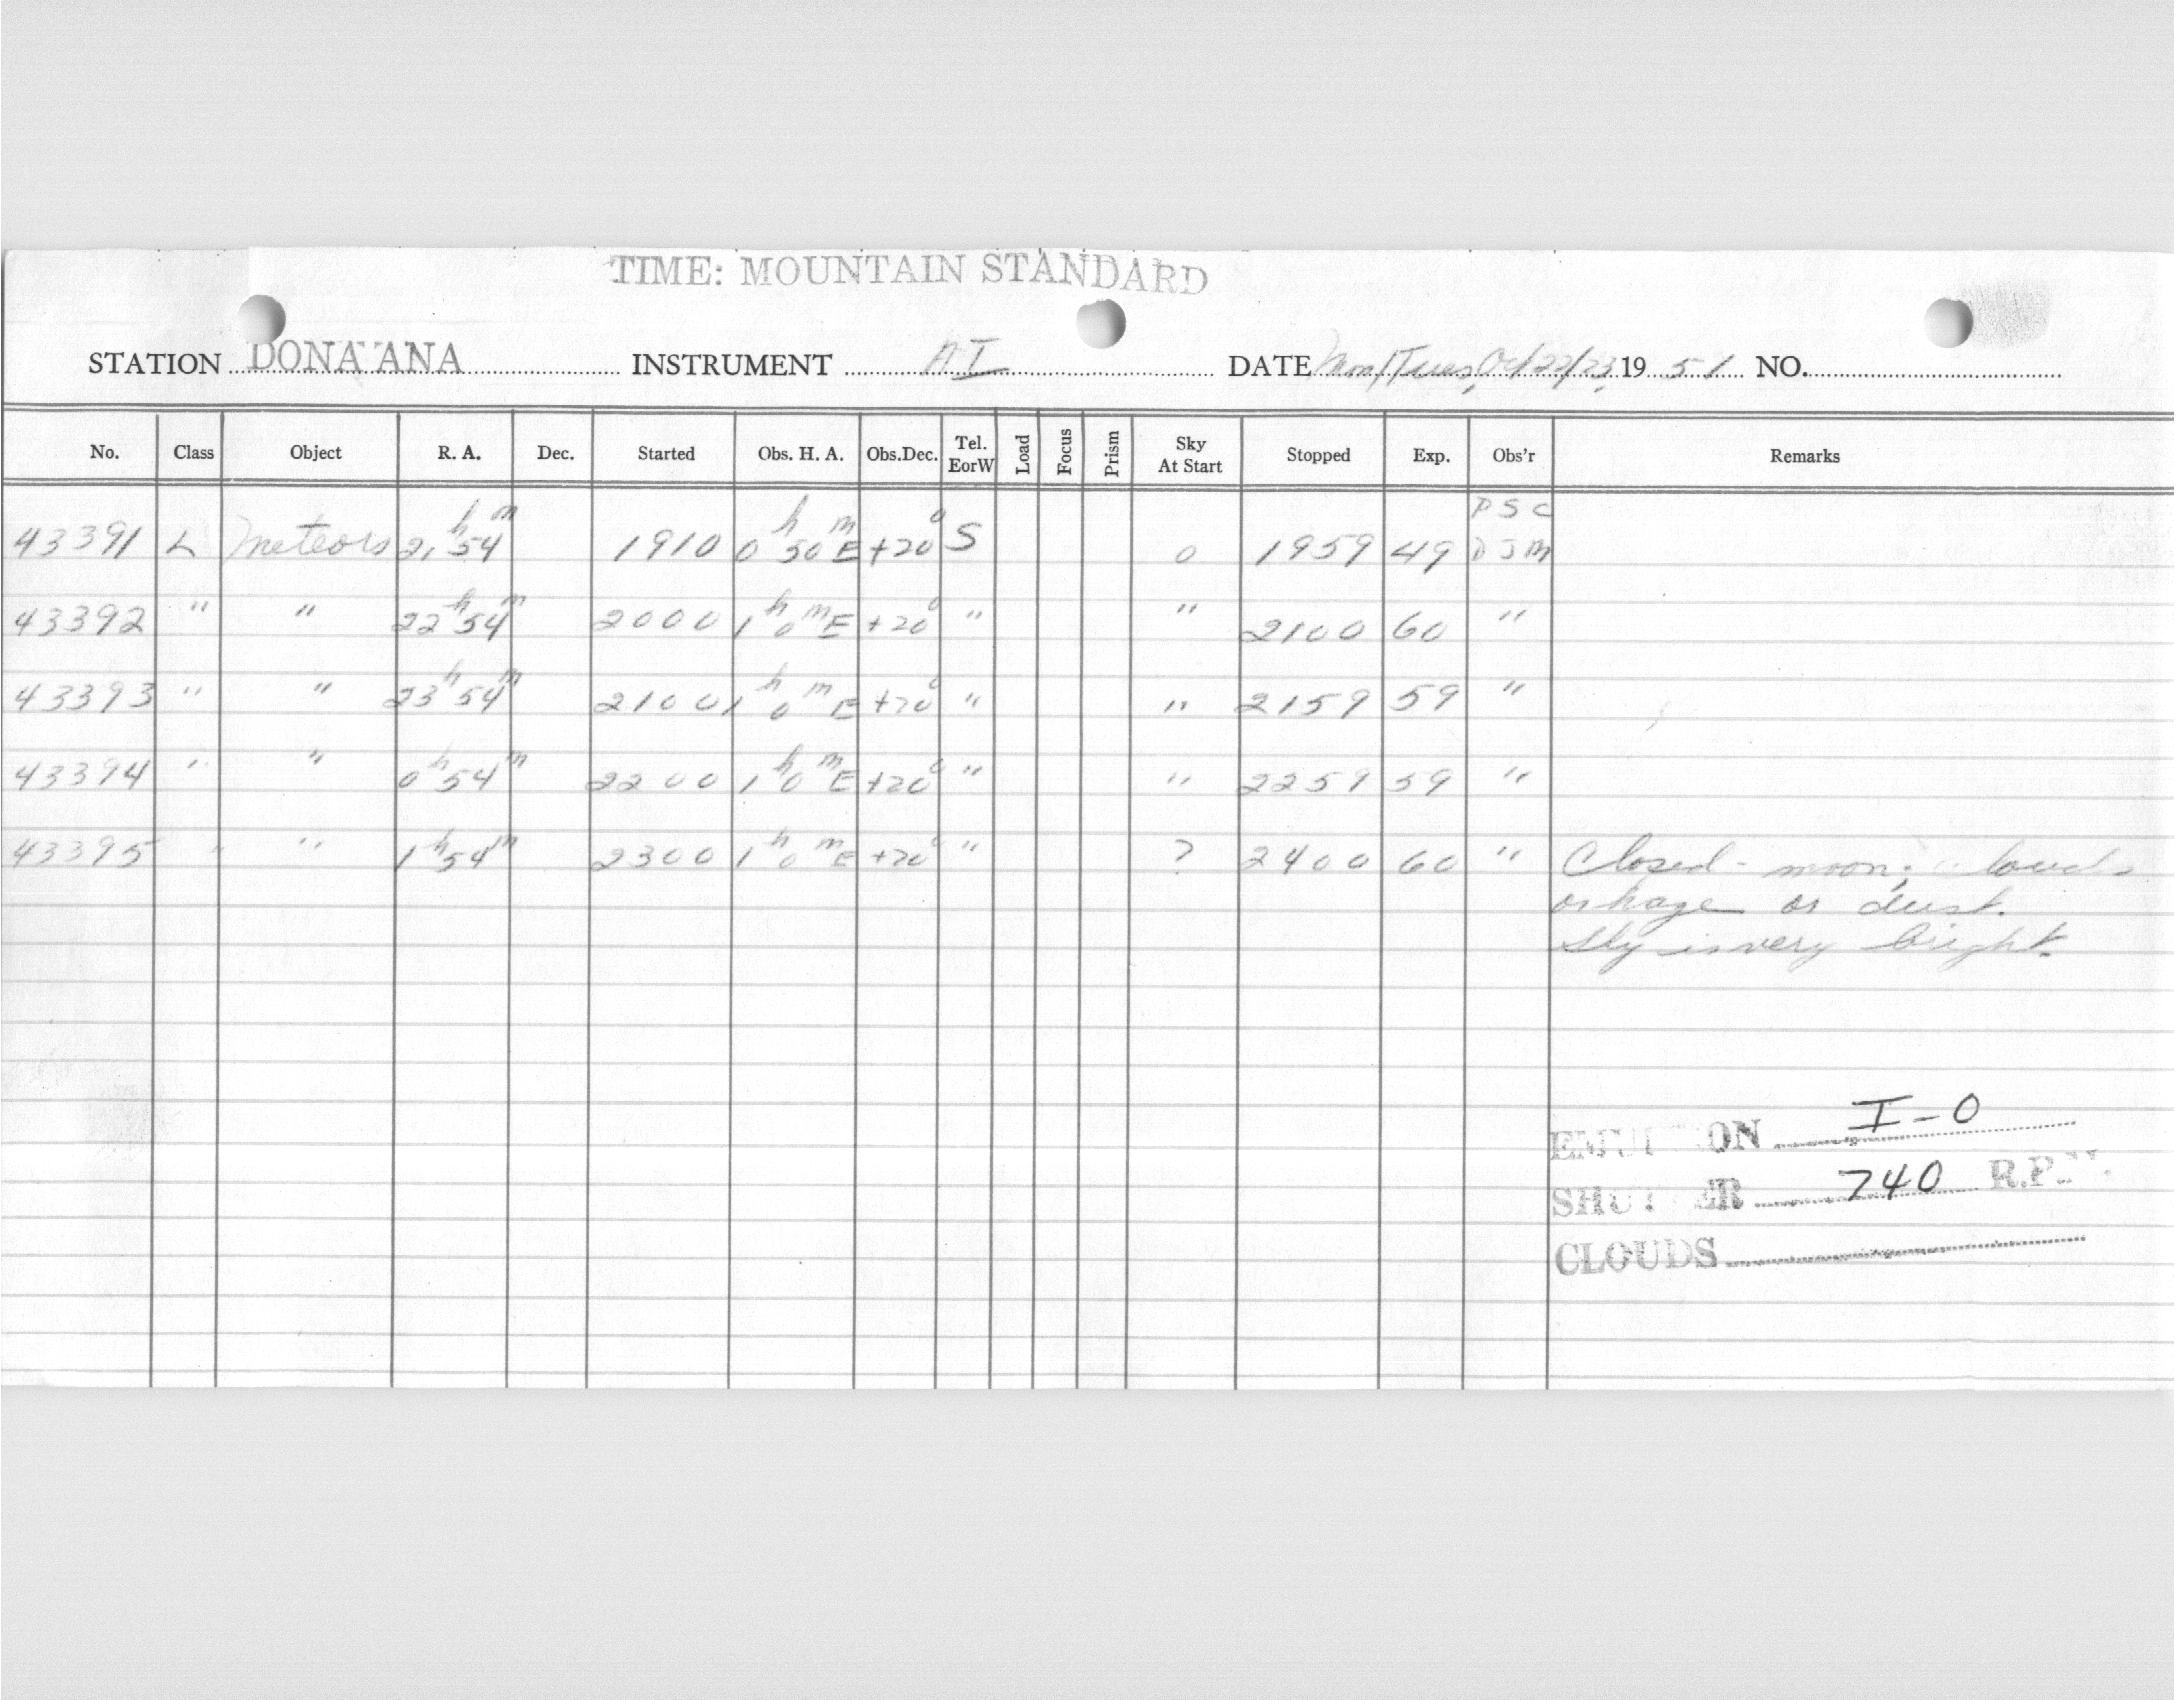 TIME: MOUNTAIN STANDARD
STATION DONA ANA INSTRUMENT AI DATE Mon/Tues, Oct 22/23, 19 51 NO.
No. Class Object R. A. Dec. Started Obs. H. A. Obs.Dec. Tel. EorW Load Focus Prism Sky At Start Stopped Exp. Obs'r Remarks
PSC
43391 L Meteors 21h 54m 1910 0h 50m E +20° S 0 1959 49 DJM
43392 " " 22h 54m 2000 1h 0m E +20° " " 2100 60 "
43393 " " 23h 54m 2100 1h 0m E +20° " " 2159 59 "
43394 " " 0h 54m 2200 1h 0m E +20° " " 2259 59 "
43395 " " 1h 54m 2300 1h 0m E +20° " ? 2400 60 " Closed - moon; clouds
or haze or dust.
Sky is very bright.
EMULSION I-O
SHUTTER 740 R.P.M.
CLOUDS